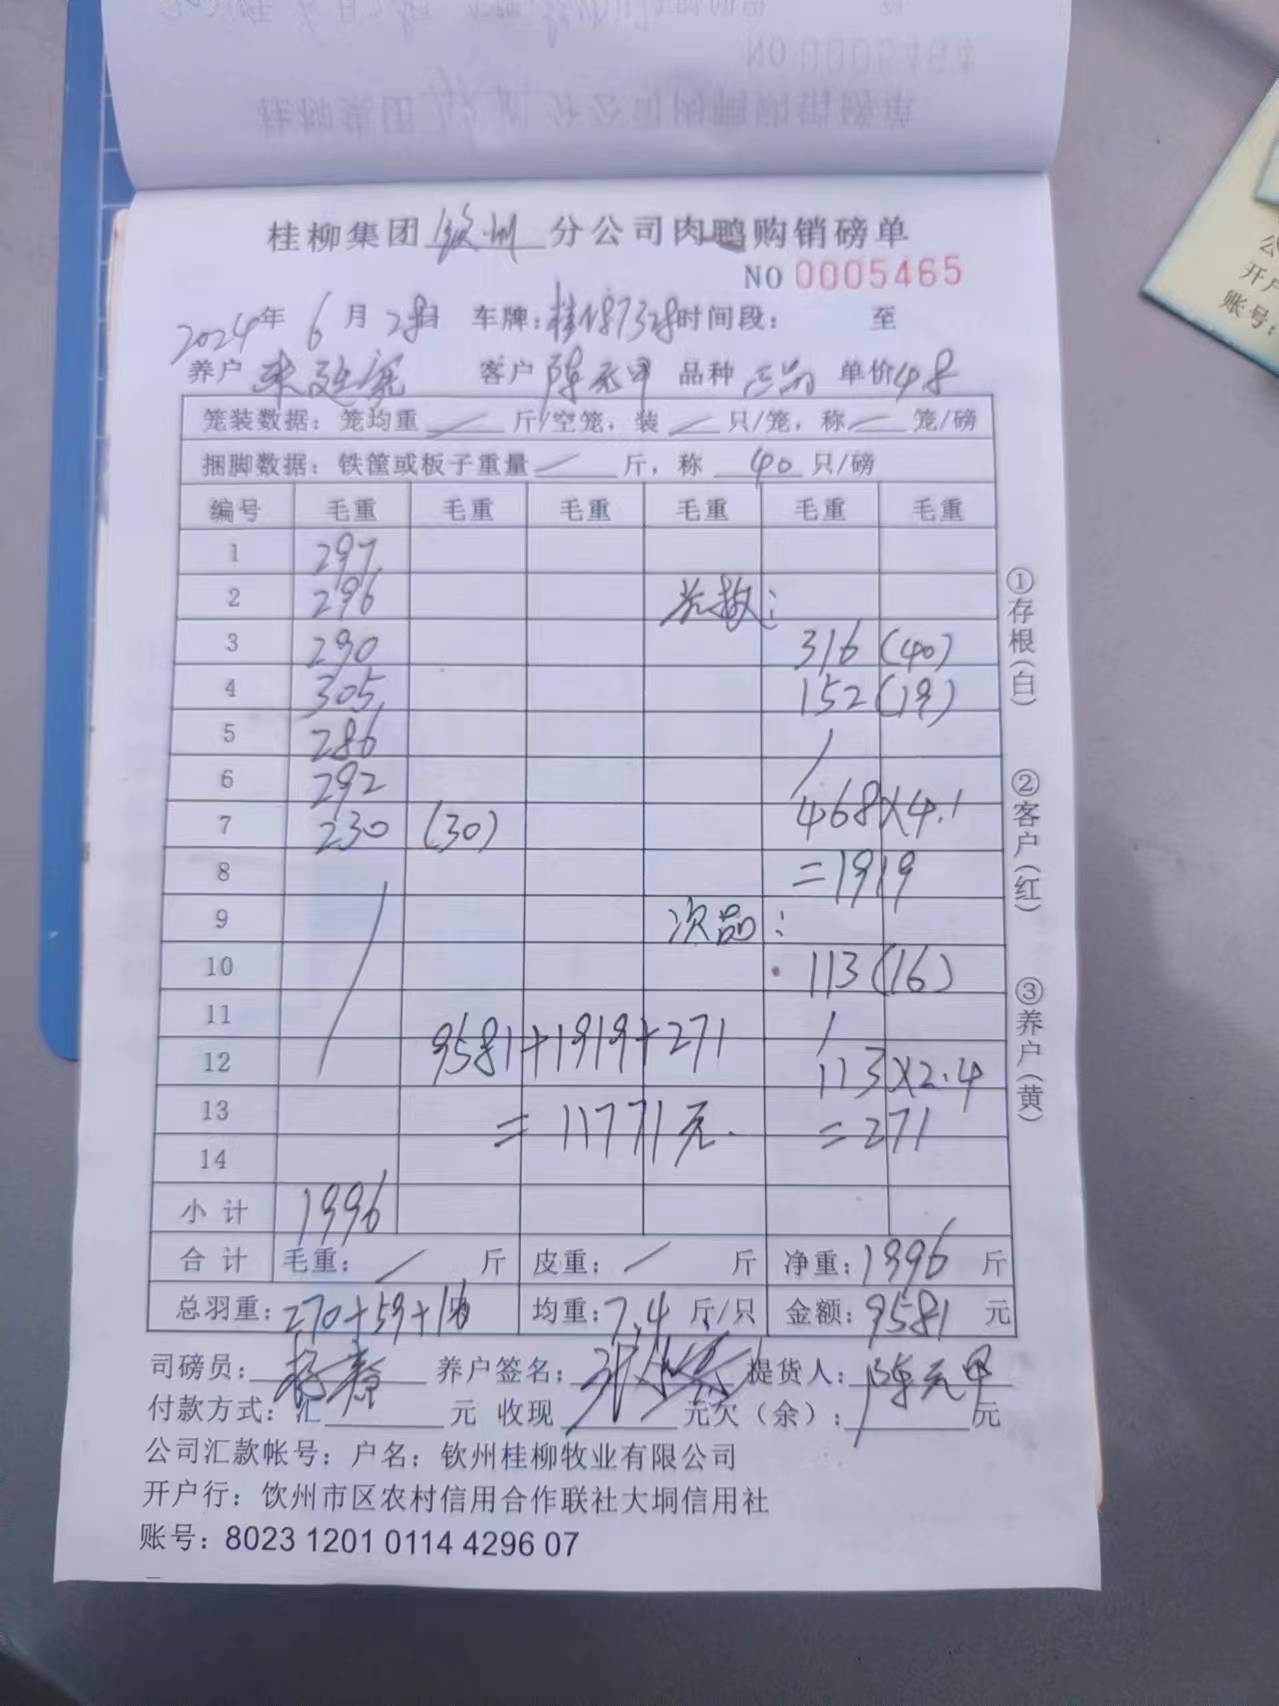 桂柳集团 钦州 分公司肉鸭购销磅单
NO 0005465
2024年 6月 28日 车牌: 时间段: 至
养户 客户 陈元甲 品种 单价 4.8
笼装数据: 笼均重 / 斤/空笼, 装 / 只/笼, 称 / 笼/磅
捆脚数据: 铁筐或板子重量 / 斤, 称 40 只/磅
编号 毛重 毛重 毛重 毛重 毛重 毛重
1 297
2 296 :
3 290 316 (40)
4 305 152 (19)
5 286 /
6 292 468×4.1
7 230 (30)
8 =1919
9 次品:
10 113 (16)
11 /
12 9581+1919+271 113×2.4
13 =11771元. =271
14
小计 1996
合计 毛重: / 斤 皮重: / 斤 净重: 1996 斤
总羽重: 270+59+16 均重: 7.4 斤/只 金额: 9581 元
司磅员: 养户签名: 提货人: 陈元甲
付款方式: 汇 元 收现 元欠(余): 元
公司汇款帐号: 户名: 钦州桂柳牧业有限公司
开户行: 饮州市区农村信用合作联社大垌信用社
账号: 8023 1201 0114 4296 07
①存根(白)
②客户(红)
③养户(黄)
开户
账号: